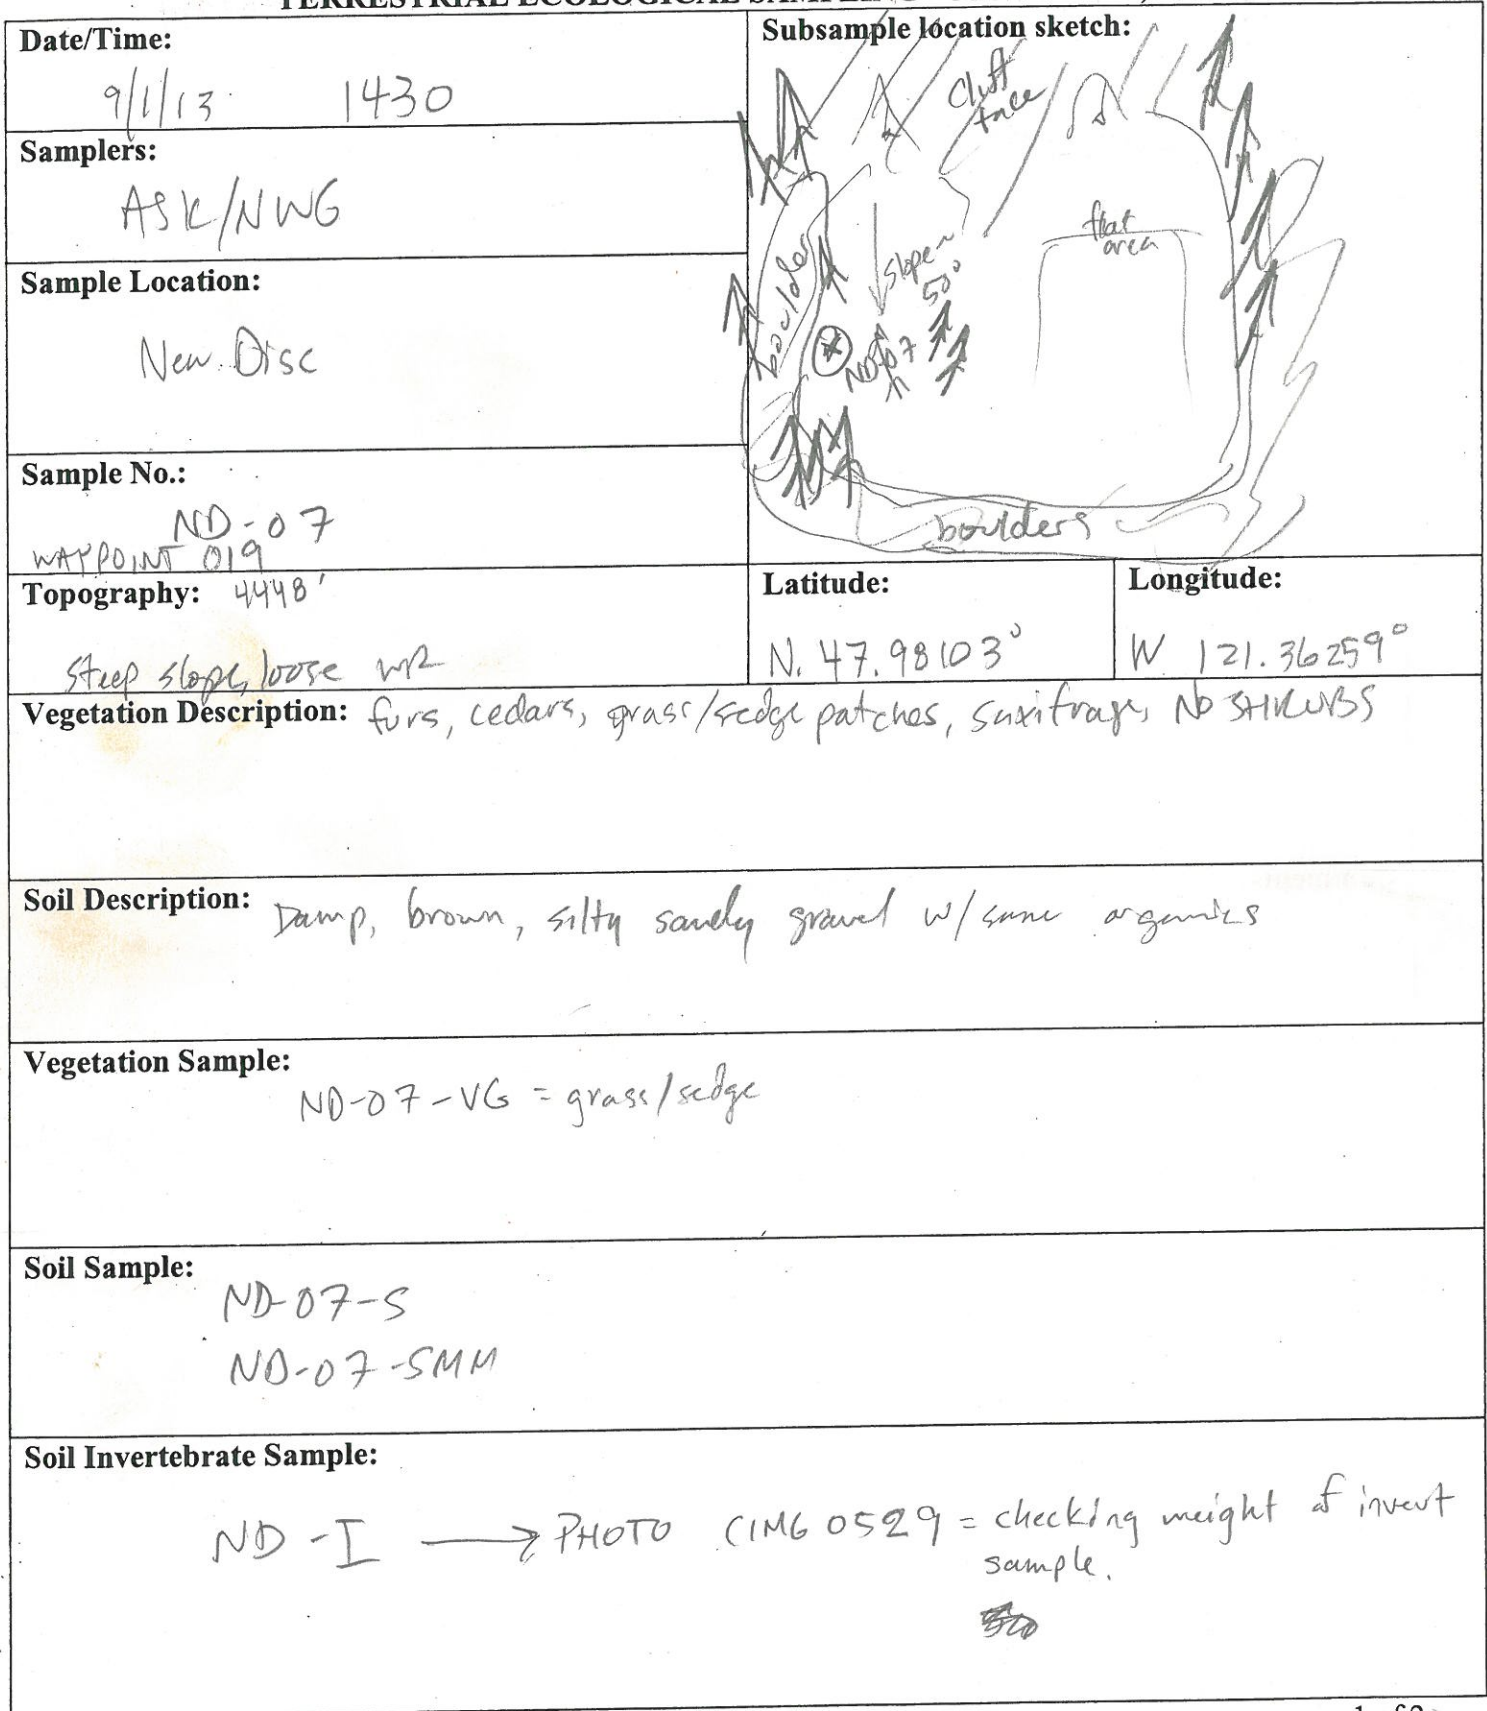 TERRESTRIAL ECOLOGICAL SAMPLING
Date/Time:
9/1/13 1430
Samplers:
ASK/NWG
Sample Location:
New Disc
Sample No.:
ND-07
WAYPOINT 019
Subsample location sketch:
Cliff
face
flat
area
boulder
slope~
50°
ND-07
boulders
Topography: 4448'
Steep slope, loose WR
Latitude:
N. 47.98103°
Longitude:
W 121.36259°
Vegetation Description: furs, cedars, grass/sedge patches, saxifrage, NO SHRUBS
Soil Description: Damp, brown, silty sandy gravel w/ some organics
Vegetation Sample:
ND-07-VG = grass/sedge
Soil Sample:
ND-07-S
ND-07-SMM
Soil Invertebrate Sample:
ND-I → PHOTO CIMG 0529 = checking weight of invert
sample.